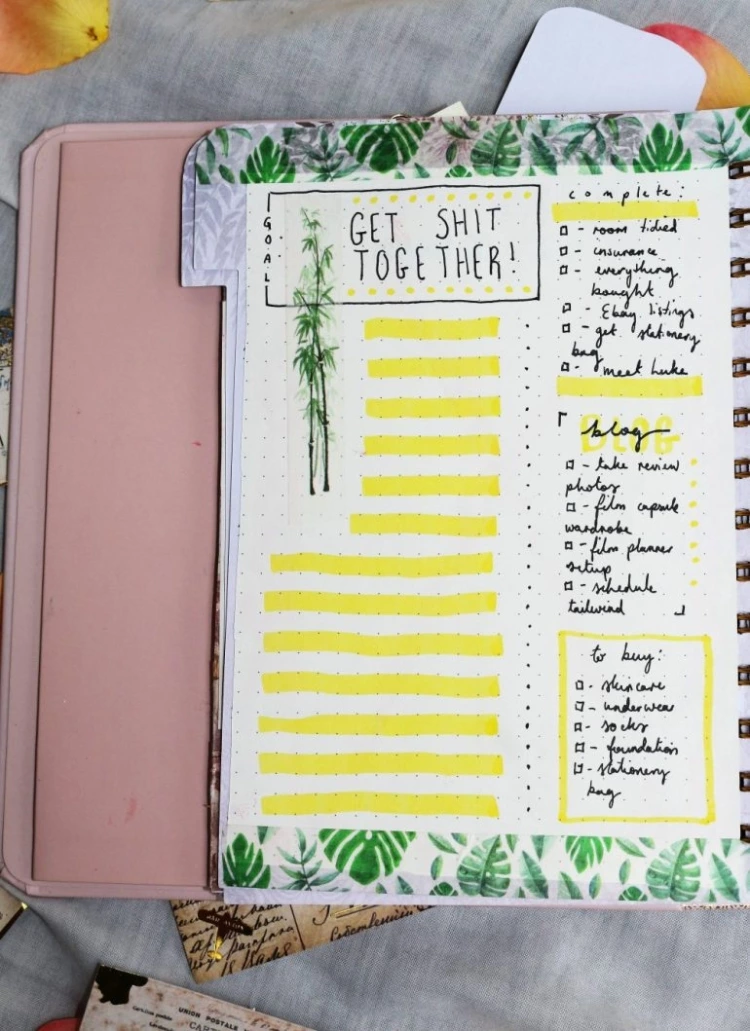 GOAL
GET SHIT
TOGETHER!
complete:
- room tidied
- insurance
- everything
bought
- Ebay listings
- get stationery
bag
- meet Luke
BLOG
blog
- take review
photos
- film capsule
wardrobe
- film planner
setup
- schedule
tailwind
to buy:
- skincare
- underwear
- socks
- foundation
- stationery
bag
UNION POSTALE